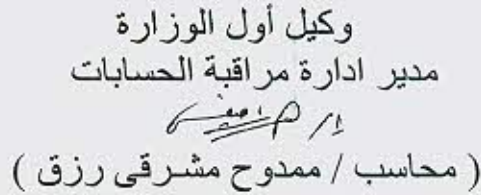 وكيل أول الوزارة
مدير ادارة مراقبة الحسابات
( محاسب / ممدوح مشرقى رزق )